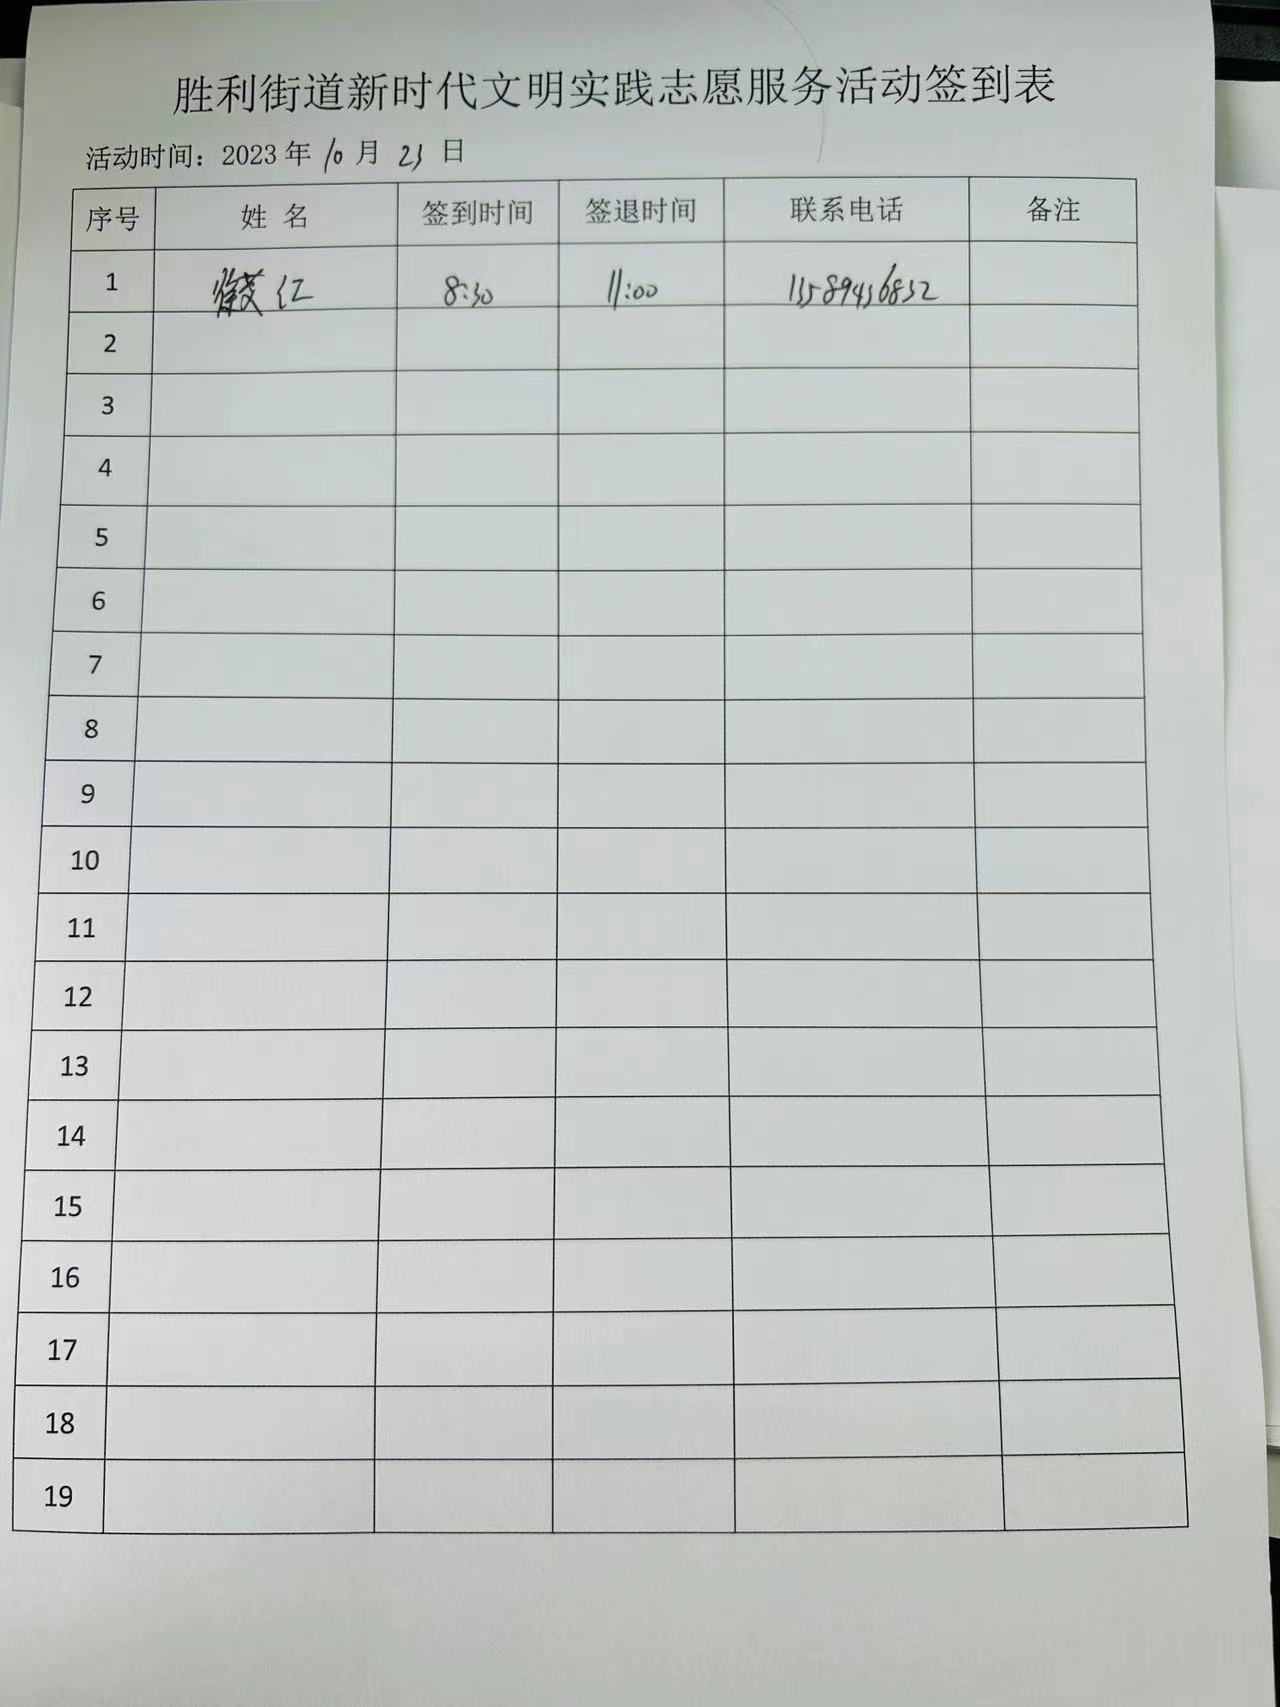 胜利街道新时代文明实践志愿服务活动签到表
活动时间：2023 年 10 月 23 日
序号 姓 名 签到时间 签退时间 联系电话 备注
1 仁 8:30 11:00
2
3
4
5
6
7
8
9
10
11
12
13
14
15
16
17
18
19